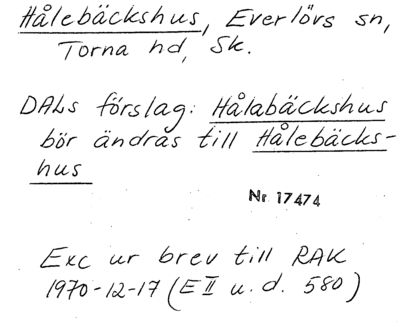 Hålebäckshus, Everlövs sn,
Torna hd, Sk.
DALs förslag: Hålabäckshus
bör ändras till Hålebäcks-
hus
Nr 17474
Exc ur brev till RAK
1970-12-17 (E II u. d. 580)